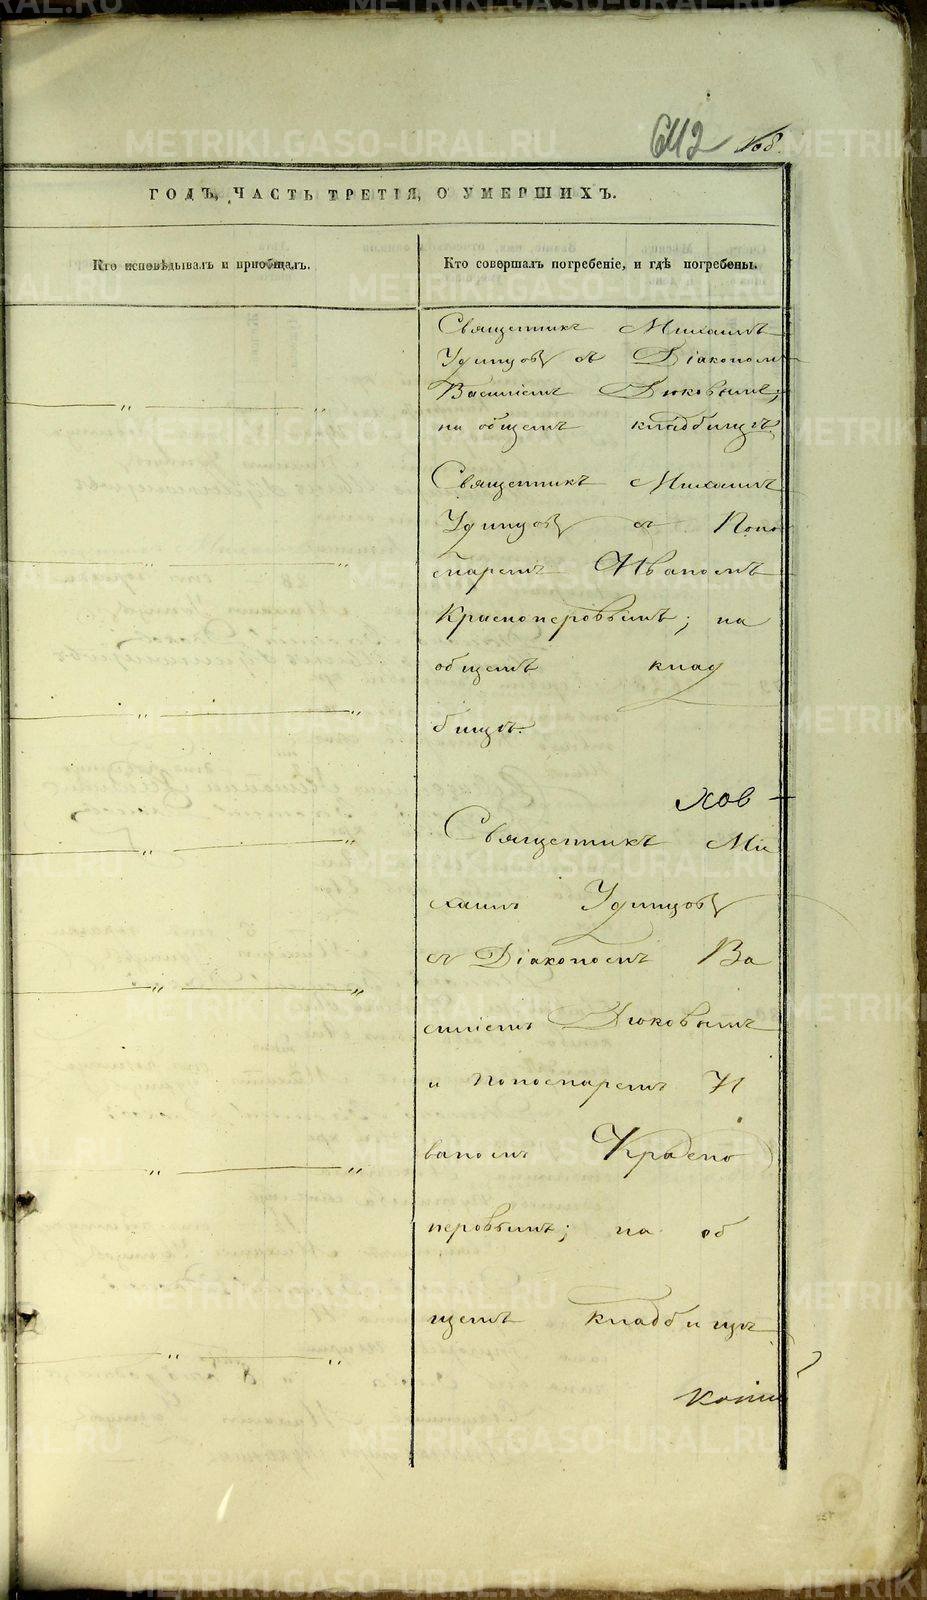 642
ГОДЪ, ЧАСТЬ ТРЕТІЯ, О УМЕРШИХЪ.
Кто исповѣдывалъ и пріобщалъ.
Кто совершалъ погребеніе, и гдѣ погребены.
Священникъ Михаилъ
Удинцовъ съ Діакономъ
Василіемъ Дюковымъ;
на общемъ кладбищѣ
Священникъ Михаилъ
Удинцовъ съ Поно
маремъ Иваномъ
Красноперовымъ; на
общемъ клад
бищѣ.
Священникъ Ми
хаилъ Удинцовъ
съ Діакономъ Ва
силіемъ Дюковымъ
и Пономаремъ И
ваномъ Красно
перовымъ; на об
щемъ кладбищѣ
METRIKI.GASO-URAL.RU